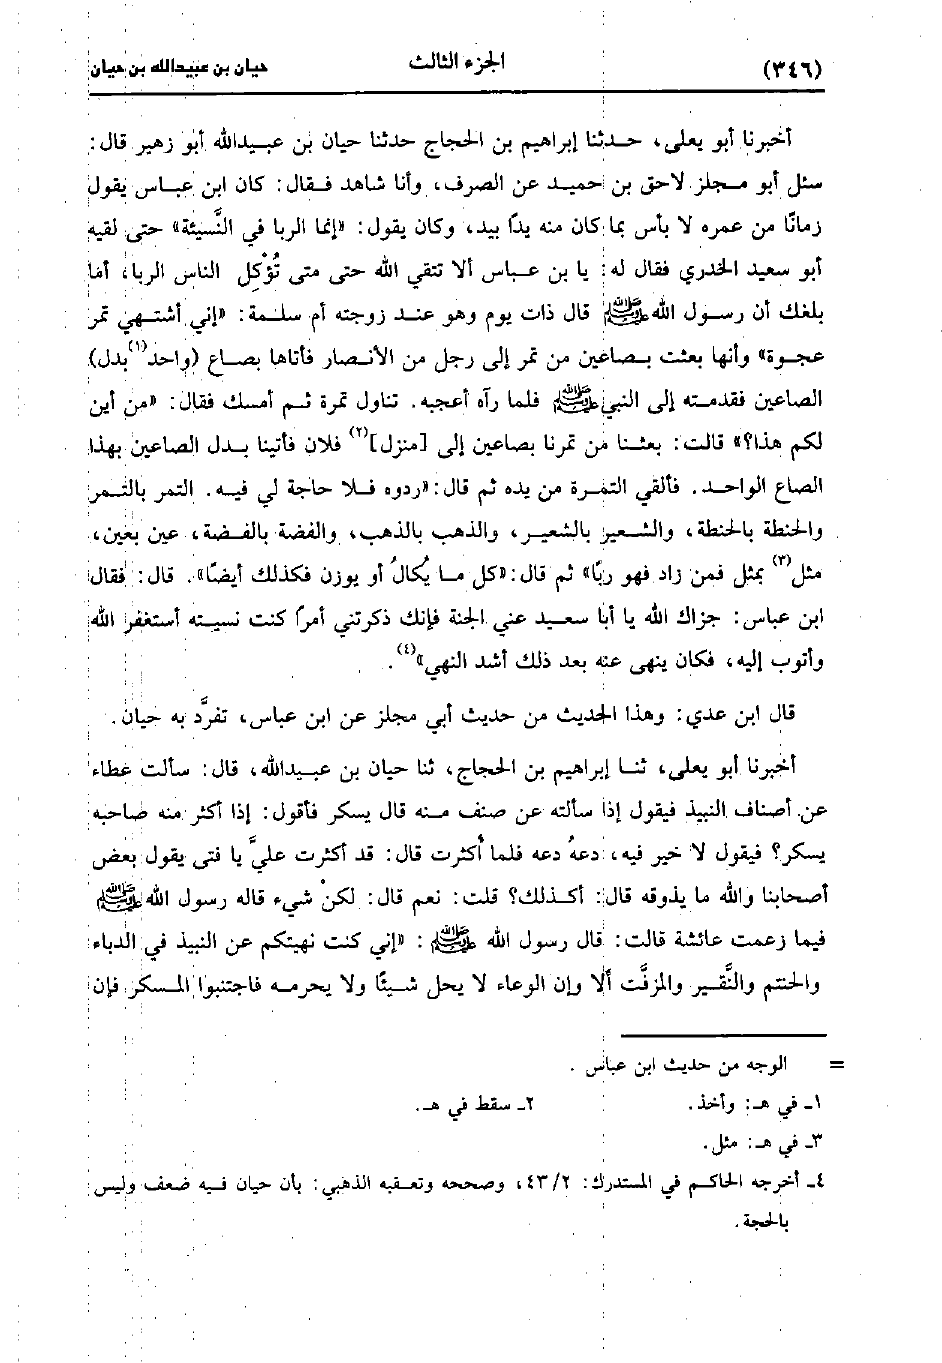 (٣٤٦) الجزء الثالث حيان بن عبيدالله بن حيان
أخبرنا أبو يعلى، حدثنا إبراهيم بن الحجاج حدثنا حيان بن عبيدالله أبو زهير قال:
سئل أبو مجلز لاحق بن حميد عن الصرف، وأنا شاهد فقال: كان ابن عباس يقول
زمانًا من عمره لا بأس بما كان منه يدًا بيد، وكان يقول: «إنما الربا في النَّسيئة» حتى لقيه
أبو سعيد الخدري فقال له: يا بن عباس ألا تتقي الله حتى متى تُؤْكِل الناس الربا، أما
بلغك أن رسول الله ﷺ قال ذات يوم وهو عند زوجته أم سلمة: «إني أشتهي تمر
عجوة» وأنها بعثت بصاعين من تمر إلى رجل من الأنصار فأتاها بصاع (واحد(١) بدل)
الصاعين فقدمته إلى النبي ﷺ فلما رآه أعجبه. تناول تمرة ثم أمسك فقال: «من أين
لكم هذا؟» قالت: بعثنا من تمرنا بصاعين إلى [منزل](٢) فلان فأتينا بدل الصاعين بهذا
الصاع الواحد. فألقي التمرة من يده ثم قال: «ردوه فلا حاجة لي فيه. التمر بالتمر
والحنطة بالحنطة، والشعير بالشعير، والذهب بالذهب، والفضة بالفضة، عين بعين،
مثل(٣) بمثل فمن زاد فهو ربًا» ثم قال: «كل ما يُكالُ أو يوزن فكذلك أيضًا». قال: فقال
ابن عباس: جزاك الله يا أبا سعيد عني الجنة فإنك ذكرتني أمرًا كنت نسيته أستغفر الله
وأتوب إليه، فكان ينهى عنه بعد ذلك أشد النهي»(٤).
قال ابن عدي: وهذا الحديث من حديث أبي مجلز عن ابن عباس، تفرَّد به حيان.
أخبرنا أبو يعلى، ثنا إبراهيم بن الحجاج، ثنا حيان بن عبيدالله، قال: سألت عطاء
عن أصناف النبيذ فيقول إذا سألته عن صنف منه قال يسكر فأقول: إذا أكثر منه صاحبه
يسكر؟ فيقول لا خير فيه، دعهُ دعه فلما أُكثرت قال: قد أكثرت عليَّ يا فتى يقول بعض
أصحابنا والله ما يذوقه قال: أكذلك؟ قلت: نعم قال: لكنْ شيء قاله رسول الله ﷺ
فيما زعمت عائشة قالت: قال رسول الله ﷺ: «إني كنت نهيتكم عن النبيذ في الدباء
والحنتم والنَّقير والمزفَّت ألا وإن الوعاء لا يحل شيئًا ولا يحرمه فاجتنبوا المسكر فإن
= الوجه من حديث ابن عباس.
١ـ في هـ: وأخذ. ٢ـ سقط في هـ.
٣ـ في هـ: مثل.
٤ـ أخرجه الحاكم في المستدرك: ٤٣/٢، وصححه وتعقبه الذهبي: بأن حيان فيه ضعف وليس
بالحجة.